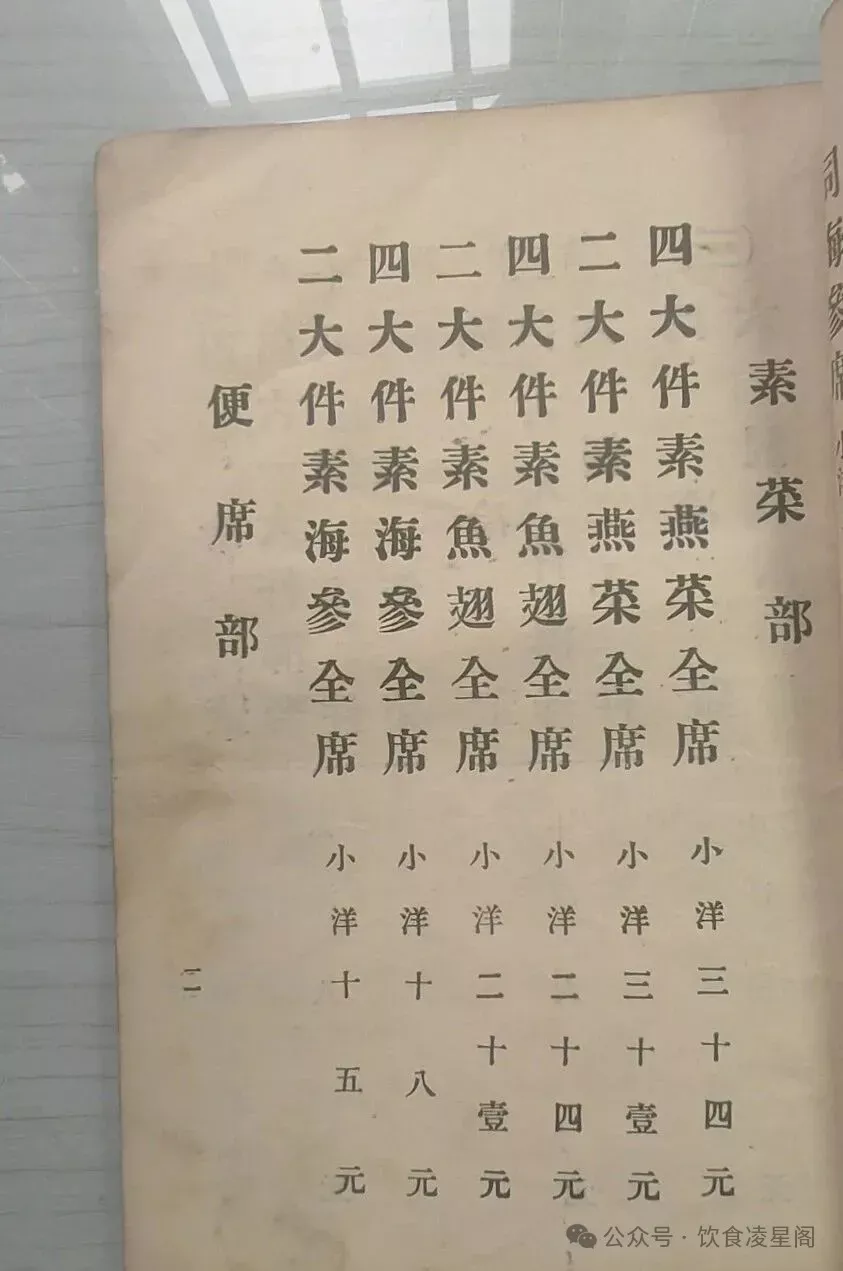 素菜部
四大件素燕菜全席 小洋三十四元
二大件素燕菜全席 小洋三十壹元
四大件素魚翅全席 小洋二十四元
二大件素魚翅全席 小洋二十壹元
四大件素海參全席 小洋十八元
二大件素海參全席 小洋十五元
便席部
二
公众号·饮食凌星阁